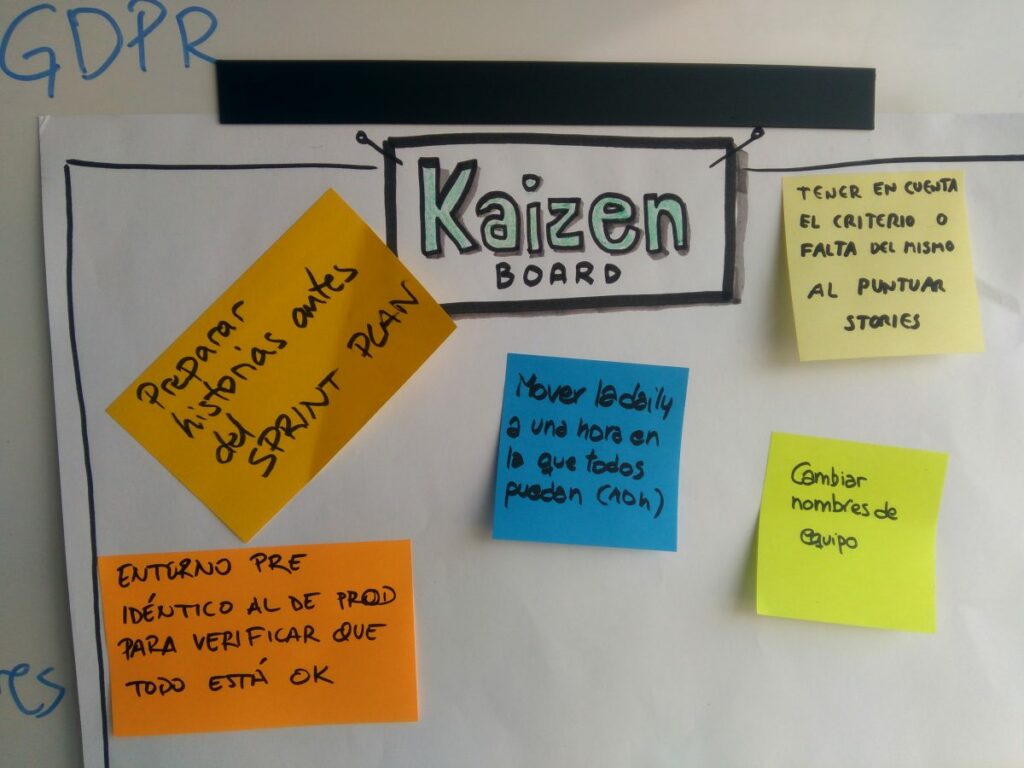 GDPR
Kaizen
BOARD
TENER EN CUENTA
EL CRITERIO O
FALTA DEL MISMO
AL PUNTUAR
STORIES
Preparar
historias antes
del
SPRINT PLAN
Mover la daily
a una hora en
la que todos
puedan (10h)
Cambiar
nombres de
equipo
ENTORNO PRE
IDÉNTICO AL DE PROD
PARA VERIFICAR QUE
TODO ESTÁ OK
res